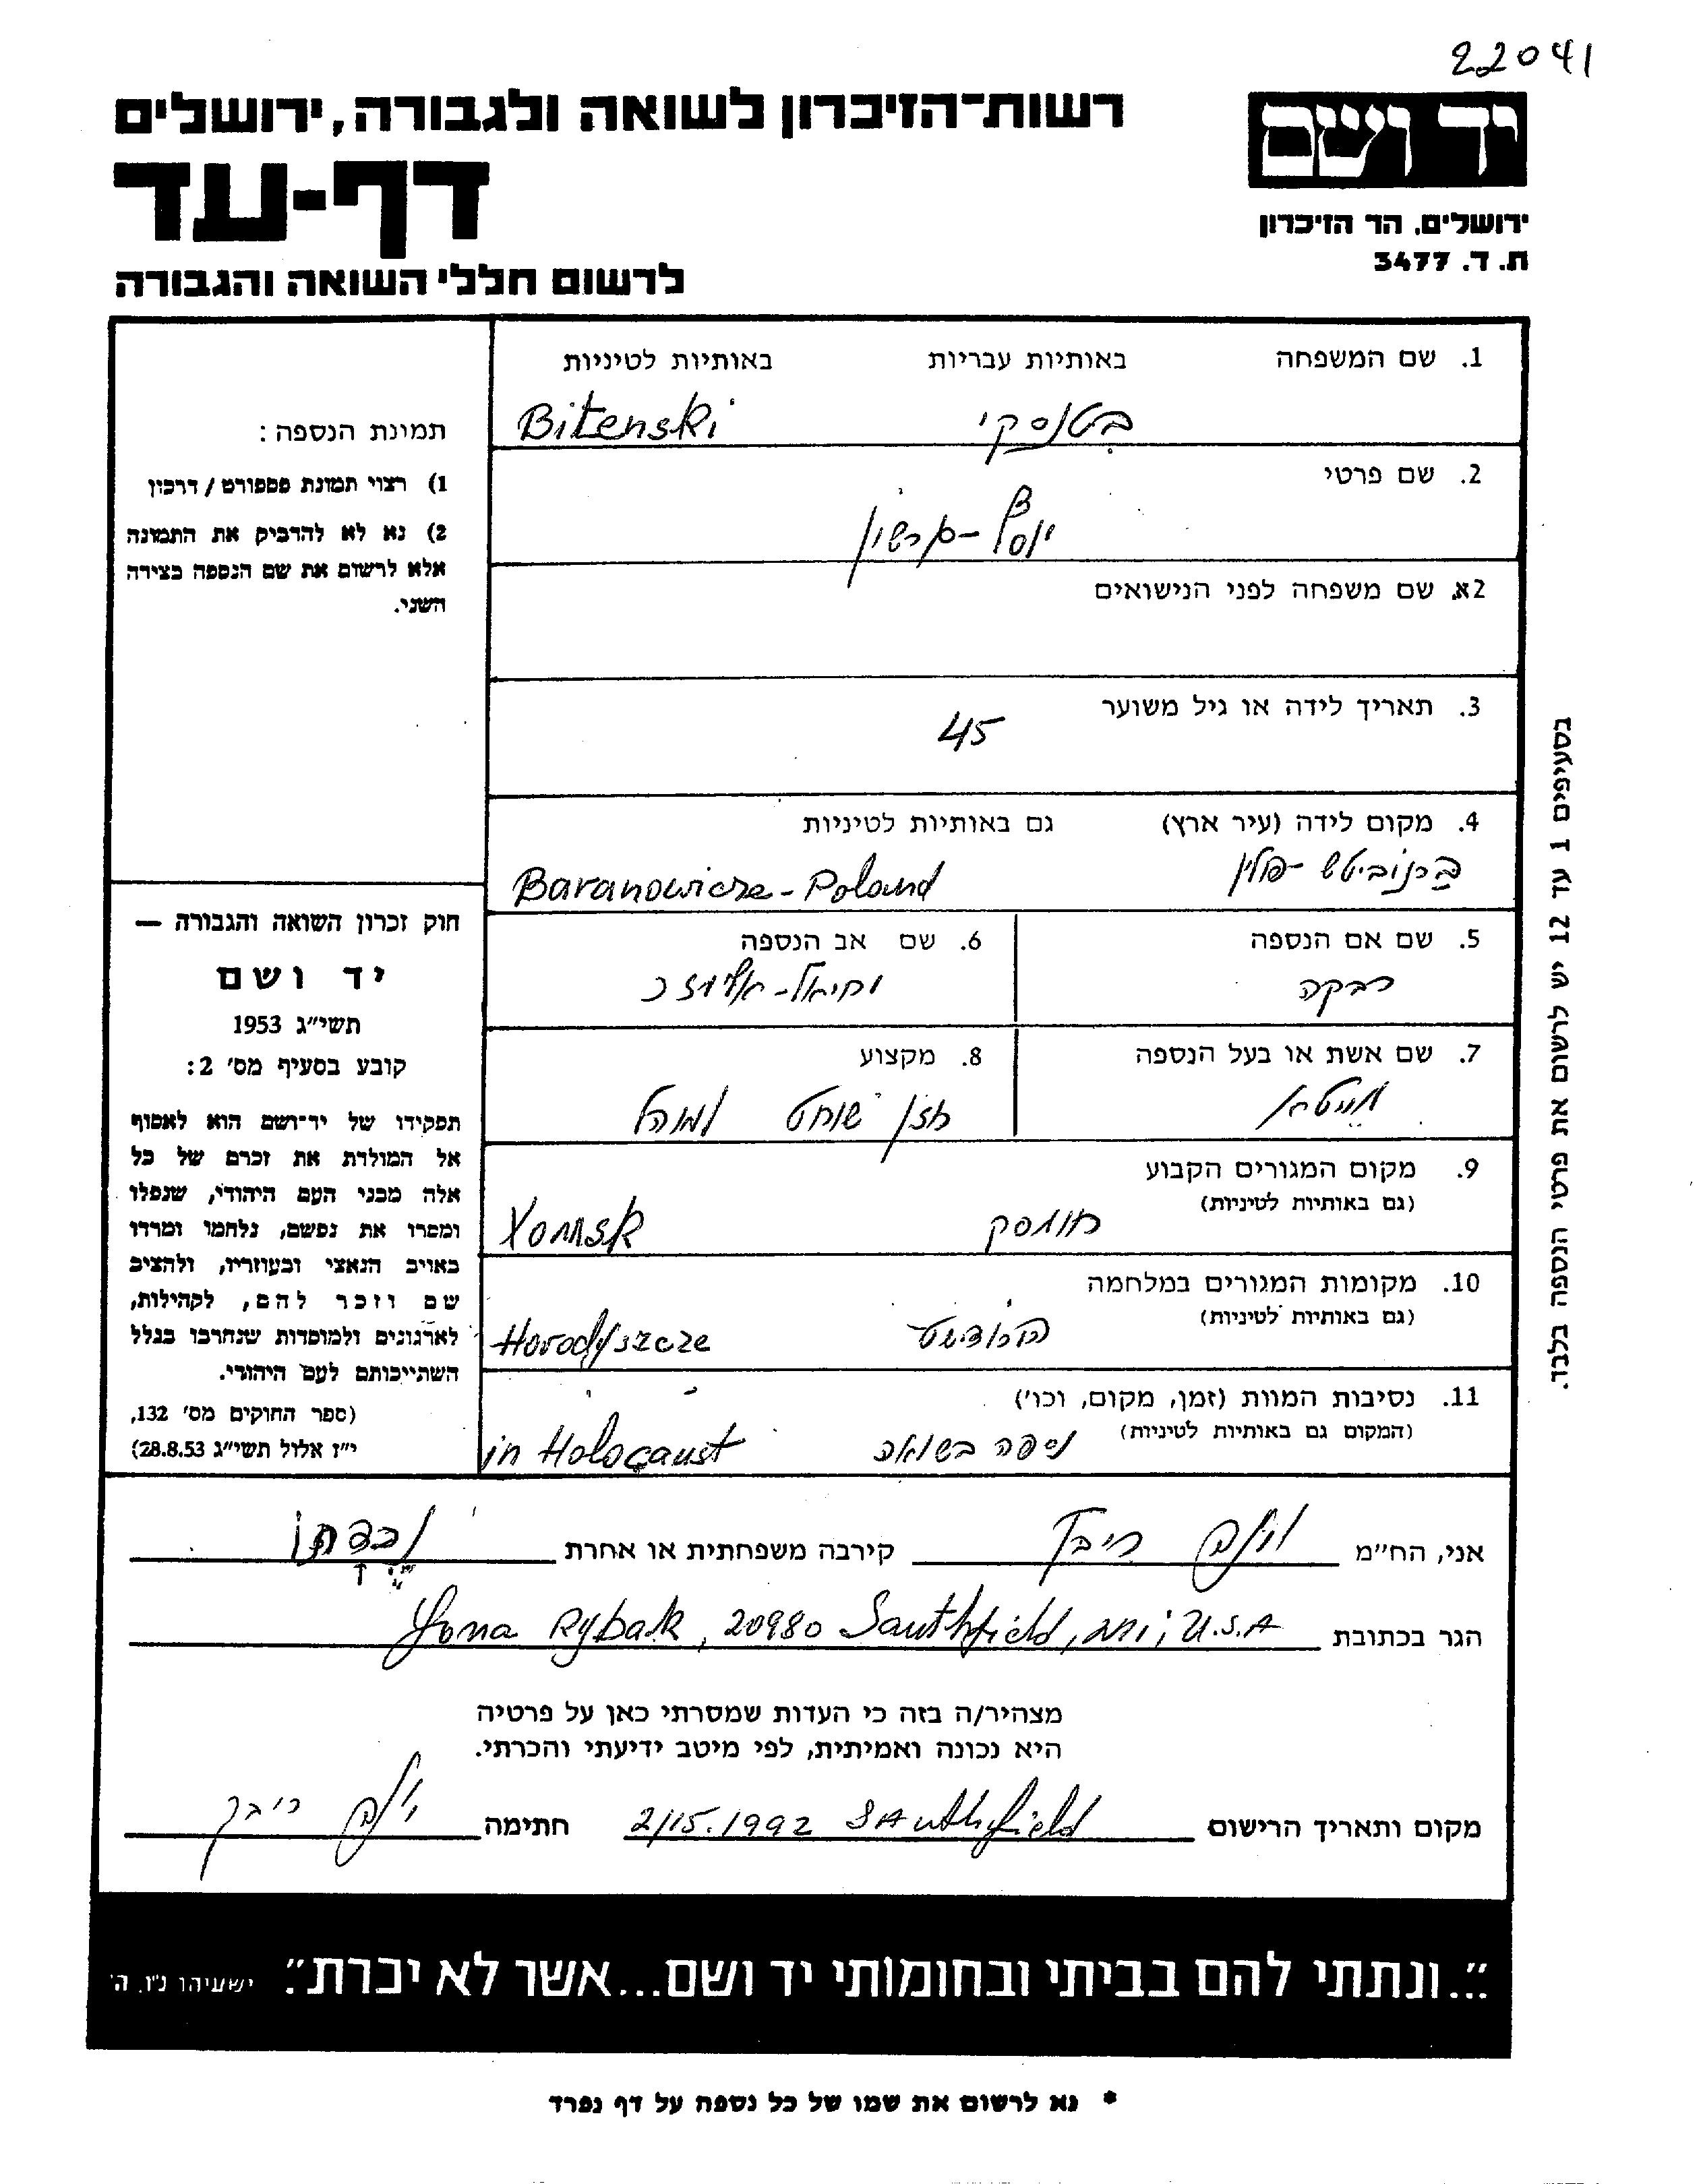 22041
רשות־הזיכרון לשואה ולגבורה, ירושלים
יד ושם
דף-עד
ירושלים, הר הזיכרון
ת. ד. 3477
לרשום חללי השואה והגבורה
1. שם המשפחה באותיות עבריות באותיות לטיניות
בטנסקי Bitenski
2. שם פרטי
יוסף-גרשון
2א. שם משפחה לפני הנישואים
3. תאריך לידה או גיל משוער
45
4. מקום לידה (עיר ארץ) גם באותיות לטיניות
ברנוביטש - פולין Baranowicze - Poland
5. שם אם הנספה 6. שם אב הנספה
רבקה
7. שם אשת או בעל הנספה 8. מקצוע
חזן שוחט ומוהל
9. מקום המגורים הקבוע
(גם באותיות לטיניות)
חומסק Xomsk
10. מקומות המגורים במלחמה
(גם באותיות לטיניות)
Horodyszcze
11. נסיבות המוות (זמן, מקום, וכו')
(המקום גם באותיות לטיניות)
ניספה בשואה in Holocaust
תמונת הנספה:
1) רצוי תמונת פספורט / דרכון
2) נא לא להדביק את התמונה
אלא לרשום את שם הנספה בצידה
השני.
חוק זכרון השואה והגבורה —
יד ושם
תשי"ג 1953
קובע בסעיף מס' 2:
תפקידו של יד־ושם הוא לאסוף
אל המולדת את זכרם של כל
אלה מבני העם היהודי, שנפלו
ומסרו את נפשם, נלחמו ומרדו
באויב הנאצי ובעוזריו, ולהציב
שם וזכר להם, לקהילות,
לארגונים ולמוסדות שנחרבו בגלל
השתייכותם לעם היהודי.
(ספר החוקים מס' 132,
י"ז אלול תשי"ג 28.8.53)
בסעיפים 1 עד 12 יש לרשום את פרטי הנספה בלבד.
אני, הח"מ יונה ריבק קירבה משפחתית או אחרת נכדתו
הגר בכתובת Yona Rybak, 20980 Southfield, Mi; U.S.A
מצהיר/ה בזה כי העדות שמסרתי כאן על פרטיה
היא נכונה ואמיתית, לפי מיטב ידיעתי והכרתי.
מקום ותאריך הרישום Southfield 2/15.1992 חתימה יונה ריבק
"...ונתתי להם בביתי ובחומותי יד ושם...אשר לא יכרת". ישעיהו נ"ו, ה'
* נא לרשום את שמו של כל נספה על דף נפרד